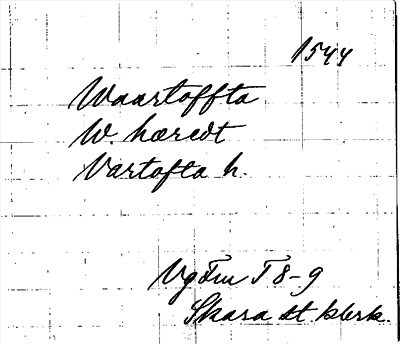 1544
Waartoffta
W. hæredt
Vartofta h.
VgFm T 8-9
Skara st. klerk.